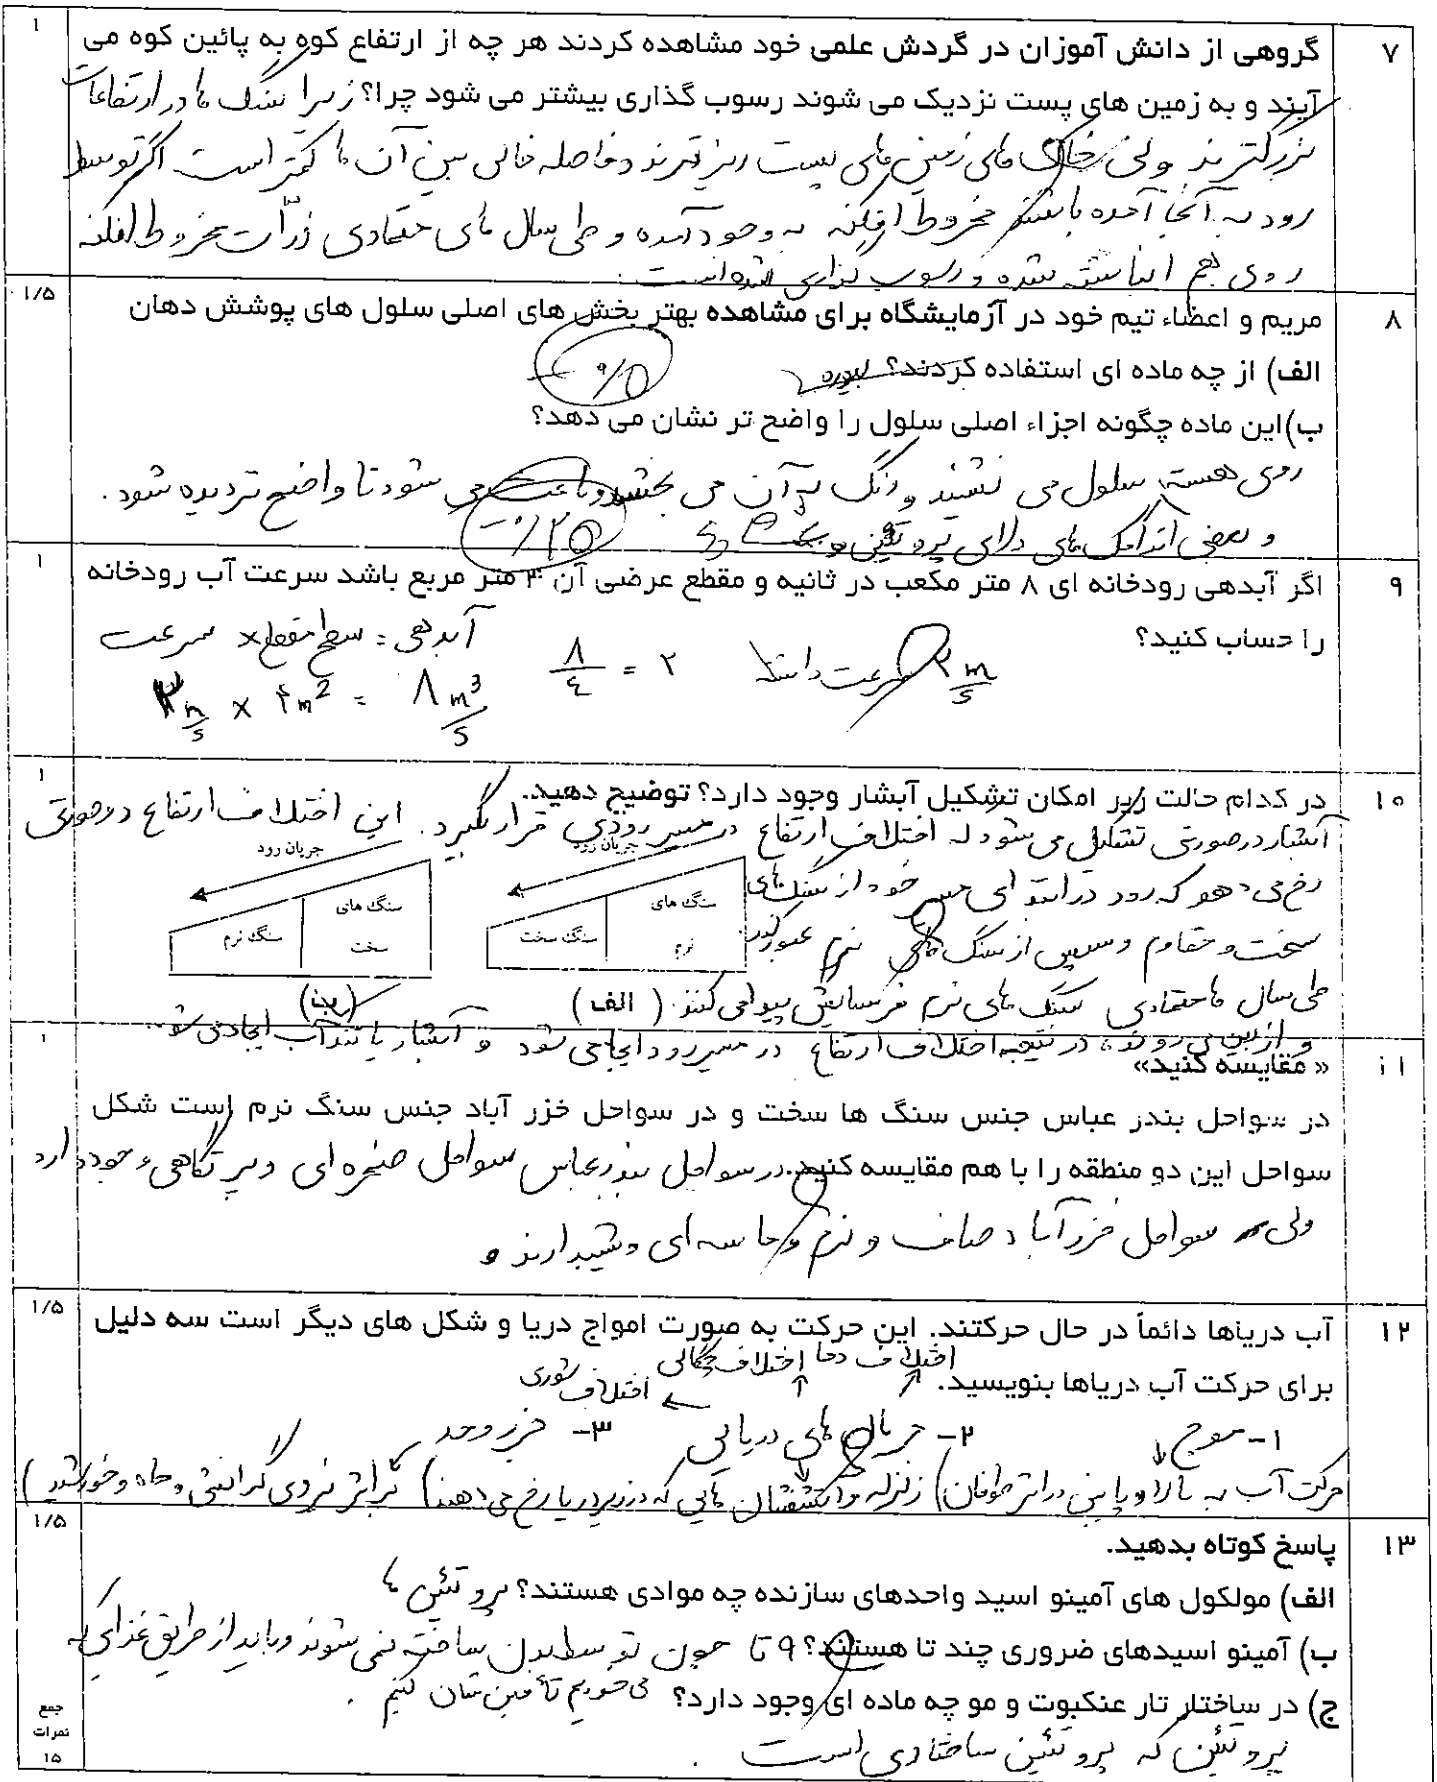 ۷ گروهی از دانش آموزان در گردش علمی خود مشاهده کردند هر چه از ارتفاع کوه به پائین کوه می ۱
آیند و به زمین های پست نزدیک می شوند رسوب گذاری بیشتر می شود چرا؟ زیرا سنگ ها در ارتفاعات
بزرگترند ولی خاک های زمین های پست ریزترند و فاصله خالی بین آن ها کمتر است اگر توسط
رود به آنجا آمده باشند مخروط افکنه به وجود آمده و طی سال های متمادی ذرّات مخروط افکنه
روی هم انباشته شده و رسوب گذاری شده است.
۸ مریم و اعضاء تیم خود در آزمایشگاه برای مشاهده بهتر بخش های اصلی سلول های پوشش دهان ۱/۵
الف) از چه ماده ای استفاده کردند؟
ب)این ماده چگونه اجزاء اصلی سلول را واضح تر نشان می دهد؟
روی هسته سلول می نشیند و رنگ به آن می بخشد و باعث می شود تا واضح تر دیده شود.
و بعضی اندامک های دارای پروتئین
۹ اگر آبدهی رودخانه ای ۸ متر مکعب در ثانیه و مقطع عرضی آن ۴ متر مربع باشد سرعت آب رودخانه ۱
را حساب کنید؟ آبدهی = سطح مقطع × سرعت
۲ m/s × ۴ m² = ۸ m³/s ۸/۴ = ۲ سرعت ۲ m/s
۱۰ در کدام حالت زیر امکان تشکیل آبشار وجود دارد؟ توضیح دهید. ۱
آبشار درصورتی تشکیل می شود که اختلاف ارتفاع در مسیر رودی قرار بگیرد. این اختلاف ارتفاع درصورتی
جریان رود جریان رود
رخ می دهد که رود در ابتدای مسیر خود از سنگ های
سنگ های نرم سنگ سخت
سنگ های سخت سنگ نرم
سخت و مقاوم و سپس از سنگ های نرم عبور کند.
طی سال ها متمادی سنگ های نرم فرسایش پیدا می کنند. ( الف ) (ب)
و از بین می روند، در نتیجه اختلاف ارتفاع در مسیر رود ایجاد می شود و آبشار یا تندآب ایجاد می شود.
۱۱ « مقایسه کنید» ۱
در سواحل بندر عباس جنس سنگ ها سخت و در سواحل خزر آباد جنس سنگ نرم است شکل
سواحل این دو منطقه را با هم مقایسه کنید. در سواحل بندرعباس سواحل صخره ای و پرتگاهی وجود دارد
ولی سواحل خزرآباد صاف و نرم و ماسه ای و شیبدارند
۱۲ آب دریاها دائماً در حال حرکتند. این حرکت به صورت امواج دریا و شکل های دیگر است سه دلیل ۱/۵
برای حرکت آب دریاها بنویسید. اختلاف دما اختلاف چگالی اختلاف شوری
۱- موج ۲- جریان های دریایی ۳- جزر و مد
حرکت آب به بالا و پایین در اثر طوفان) زلزله و آتشفشان هایی که در زیر دریا رخ می دهند) بر اثر نیروی گرانشی و ماه و خورشید )
۱۳ پاسخ کوتاه بدهید. ۱/۵
الف) مولکول های آمینو اسید واحدهای سازنده چه موادی هستند؟ پروتئین ها
ب) آمینو اسیدهای ضروری چند تا هستند؟ ۹ تا چون توسط بدن ساخته نمی شوند و باید از طریق غذایی که
می خوریم تأمین شان کنیم.
ج) در ساختار تار عنکبوت و مو چه ماده ای وجود دارد؟
پروتئین که پروتئین ساختاری است.
جمع
نمرات
۱۵